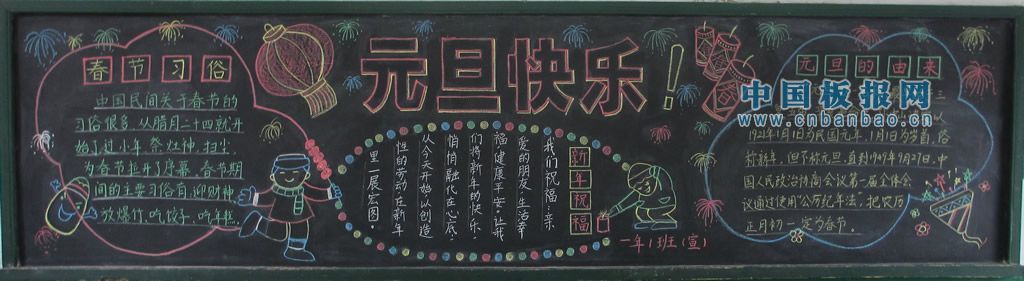 春节习俗
中国民间关于春节的
习俗很多,从腊月二十四就开
始了过小年.祭灶神,扫尘,
为春节拉开了序幕,春节期
间的主要习俗有:迎财神,
放爆竹,吃饺子,吃年糕.
元旦快乐!
新年祝福
我们祝福:亲
爱的朋友,生活幸
福,健康平安。让我
们将新年的快乐,
悄悄融化在心底,
从今天开始以创造
性的劳动在新年
里一展宏图。
一年1班(宣)
元旦的由来
中国板报网
www.cnbanbao.cn
年1月1日为民国元年,1月1日为岁首,俗
称新年,但不称元旦,直到1949年9月27日,中
国人民政治协商会议第一届全体会
议通过使用"公历纪年法",把农历
正月初一定为春节。